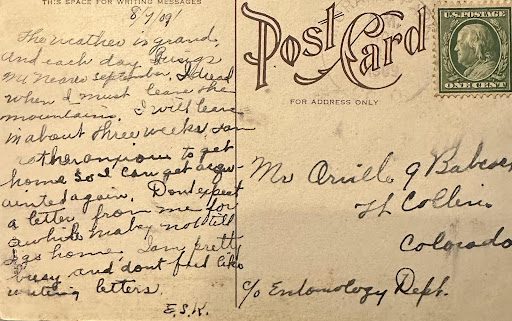 THIS SPACE FOR WRITING MESSAGES
8/7/09
The weather is grand,
and each day Brings
me nearer September, I dread
when I must leave the
mountains. I will leave
in about three weeks, am
rather anxious to get
home so I can get acqu-
ainted again. Dont expect
a letter from me for
awhile maby not till
I go home. I am pretty
busy and dont feel like
writing letters.
E.S.K.
Post Card
FOR ADDRESS ONLY
U.S. POSTAGE
ONE CENT
Mr Orville G Babcock
Ft Collins
Colorado
c/o Entomology Dept.